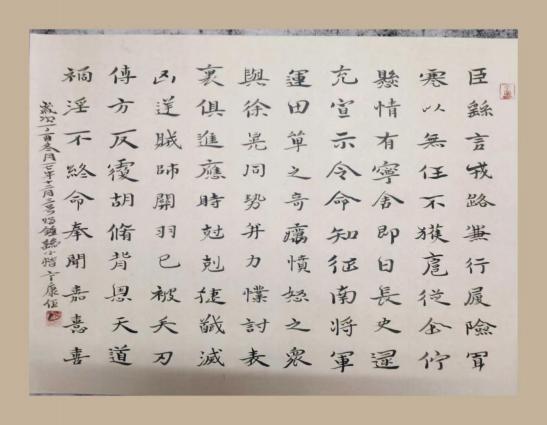 臣繇言戎路兼行履險冒
寒以無任不獲扈從企佇
懸情有寧舍即日長史逯
充宣示令命知征南將軍
運田單之奇癘憤怒之衆
與徐晃同勢并力撲討表
裏俱進應時尅剋捷馘滅
凶逆賊帥關羽已被矢刃
傅方反覆胡脩背恩天道
禍淫不終命奉聞嘉憙喜
歲次年十二月鍾繇小楷